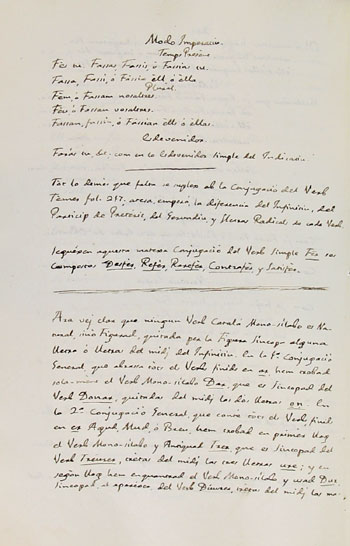 Modo Imperaciu.
Temps Present
Fes tu. Fassas Fassis, ó Fassia tu.
Fassa, Fassi, ó Fassia ell, ó ella
Plural.
Fem, ó Fassam nosaltres.
Feu ó Fassau vosaltres.
Fassan, fassin, ó Fassian ells ó ellas.
Esdevenidor.
Farás tu, &c. com en lo Esdevenidor simple del Indicatiu
Tot lo demés que falta se supleix ab la Conjugació del Verb
Témer fol. 217. atesa, empero, la diferencia del Infinitiu, del
Particip de Preterit, del Gerundiu y lletras Radicals de cada Verb.
Segueixen aquesta mateixa Conjugació del Verb simple Fes sos
compostos Desfes, Refes, Rarefes, Contrafes, y Satisfes.
Ara vej clar que ningun Verb Catalá Mono-sílabo es Na-
tural, sinó Figurad, quitada per la Figura Sincopa alguna
lletra ó lletras del mitj del Infinitiu. En la 1ª Conjugació
General, que abrassa tots els Verbs finids en ar hem trobad
sola-ment el Verb Mono-sílabo Dar, que es Sincopad del
Verb Donar, quitadas del mitj las dos lletras on. En
la 2ª Conjugació General, que conté tots els Verbs, finids
en er Agud, Mud, ó Breu, hem trobad en primer lloc
el Verb Mono-sílabo y Antiquad Trer, que es Sincopad del
Verb Treurer, tretas del mitj las tres lletras ure; y en
segon lloc hem encontrad el Verb Mono-sílabo y usad Dur,
Sincopad, el aparexer, del Verb Dúurer, tretas del mitj las